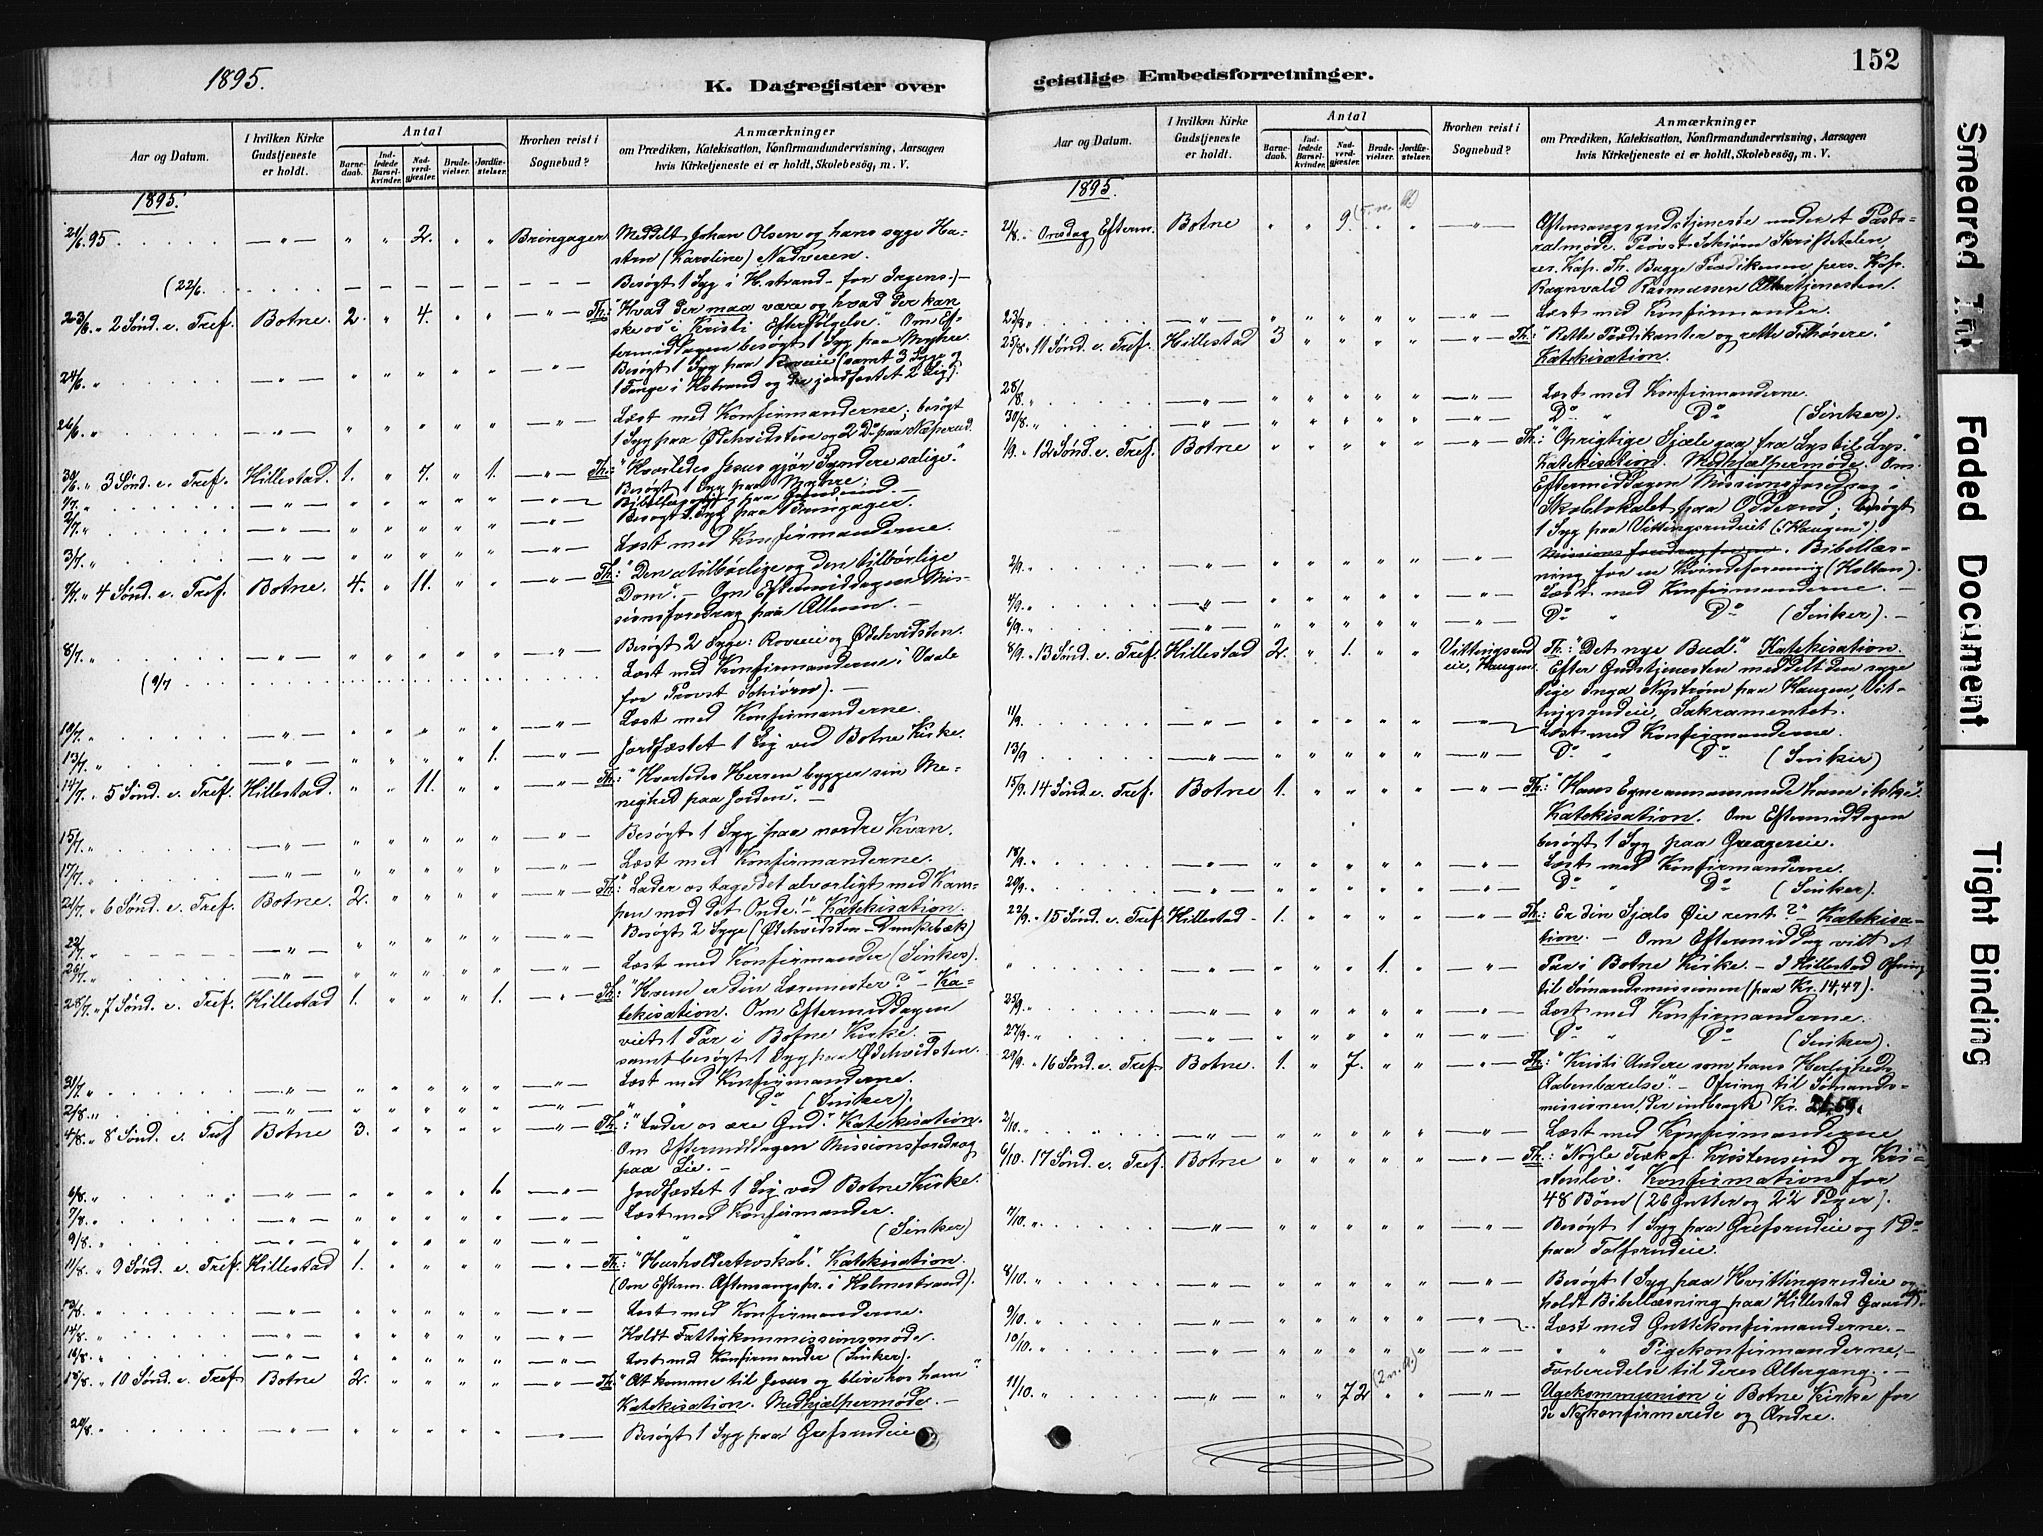 1895.
K. Dagregister over
Aar og Datum.
I hvilken Kirke Gudstjeneste er holdt.
Antal
Barnedaab.
Indledede Barselkvinder.
Nadverdgjæster.
Brudevielser.
Jordfæstelser.
Hvorhen reist i Sognebud?
Anmærkninger
om Prædiken, Katekisation, Konfirmandundervisning, Aarsagen
hvis Kirketjeneste ei er holdt, Skolebesøg, m. V.
1895.
21/6 95. — " — " " 2. " " Bringager Meddelt Johan Olsen og hans syge Ha-
stru (Karoline) Nadveren.
(22/6. Besøgt 1 Syg i H.strand - for Irgens.) —
23/6. " 2 Sønd. e. Tref. Botne. 2. " 4. " " — " — Th: "Hvad der maa være og hvad der kan
ske os i Kristi Efterfølgelse." Om Ef-
termiddagen besøgt 1 Syg paa Myhre.
24/6. " — " — " " " " " — " — Besøgt 1 Syg paa Roveie (samt 3 Syge og
1 Fange i Hstrand og jordfæstet 2 Lig).
26/6. " — " — " " " " " — " — Læst med Konfirmanderne; besøgt
1 Syg paa Ødehvidsten og 2 Do paa Næperud.
30/6. " 3 Sønd. e. Tref. Hillestad. 1. " 4. " 1. — " — Th: "Hvorledes Jesus gjør Syndere salige."
Besøgt 1 Syg paa Myhre;
1/7. " — " — " " " " " — " — Bibellæsning paa
2/7. " — " — " " " " " — " — Besøgt 1 Syg paa Bringager.
3/7. " — " — " " " " " — " — Læst med Konfirmanderne.
7/7. " 4 Sønd. e. Tref. Botne. 4. " 11. " " — " — Th: "Den utilbørlige og den tilbørlige
Dom". — Om Eftermiddagen Mis-
sionsforedrag paa —
8/7. " — " — " " " " " — " — Besøgt 2 Syge: Roveie og Ødehvidsten.
(9/7 Læst med Konfirmanderne i Vaale
for Provst Schiørn). —
10/7. " — " — " " " " " — " — Læst med Konfirmanderne.
13/7. " — " — " " " " 1. — " — Jordfæstet 1 Lig ved Botne Kirke.
14/7. " 5 Sønd. e. Tref. Hillestad. " " 11. " " — " — Th: "Hvorledes Herren bygger sin Me-
nighed paa Jorden". —
15/7. " — " — " " " " " — " — Besøgt 1 Syg paa nordre Kvan.
17/7. " — " — " " " " " — " — Læst med Konfirmanderne.
21/7. " 6 Sønd. e. Tref. Botne. 2. " " " " — " — Th: "Lader os tage det alvorligt med Kam-
pen mod det Onde!" — Katekisation.
22/7. " — " — " " " " " — " — Besøgt 2 Syge (Ødehvidsten —
26/7. " — " — " " " " " — " — Læst med Konfirmander (Sinker).
28/7. " 7 Sønd. e. Tref. Hillestad 1. " " " 1. — " — Th: "Hvem er din Læremester?" — Ka-
tekisation. Om Eftermiddagen
viet 1 Par i Botne Kirke —
samt besøgt 1 Syg paa Ødehvidsten.
31/7. " — " — " " " " " — " — Læst med Konfirmanderne.
2/8. " — " — " " " " " — " — " " Do (Sinker).
4/8. " 8 Sønd. e. Tref Botne 3. " " " " — " — Th: "Lader os ære Gud." Katekisation.
Om Eftermiddagen Missionsforedrag
paa Lie. —
6/8. " — " — " " " " — " — Jordfæstet 1 Lig ved Botne Kirke.
7/8. " — " — " " " " " — " — Læst med Konfirmander.
9/8. " — " — " " " " " — " — " " (Sinker)
11/8. " 9 Sønd. e. Tref. Hillestad 1. " " " " — " — Th: "Husholdertroskab." Katekisation.
(Om Efterm. Aftensangspr. i Holmestrand).
13/8. " — " — " " " " " — " — Læst med Konfirmanderne.
14/8. " — " — " " " " " — " — Holdt Fattigkommissionsmøde.
16/8. " — " — " " " " " — " — Læst med Konfirmander (Sinker).
18/8. " 10 Sønd. e. Tref Botne 2. " " " " — " — Th: "At komme til Jesus og blive hos ham"
Katekisation. Medhjælpermøde. —
20/8. " — " — " " " " " — " — Besøgt 1 Syg paa Grefsrudeie
152
geistlige Embedsforretninger.
Aar og Datum.
I hvilken Kirke Gudstjeneste er holdt.
Antal
Barnedaab.
Indledede Barselkvinder.
Nadverdgjæster.
Brudevielser.
Jordfæstelser.
Hvorhen reist i Sognebud?
Anmærkninger
om Prædiken, Katekisation, Konfirmandundervisning, Aarsagen
hvis Kirketjeneste ei er holdt, Skolebesøg, m. V.
1895.
21/8. " Onsdag Efterm. Botne " " 9. " " — " — Aftensangsgudstjeneste under et Pasto-
ralmøde. Provst Schiørn Skriftetalen,
res. Kap. Th. Bugge Prædikenen, pers. Kap.
Ragnvald Rasmussen Altertjenesten.
23/8. " — " — " " " " " — " — Læst med Konfirmander.
25/8. " 11 Sønd. e. Tref. Hillestad 3 " " " " — " — Th: "Rette Prædikanter og rette Tilhørere."
Katekisation.
28/8. " — " — " " " " " — " — Læst med Konfirmanderne.
30/8. " — " — " " " " " — " — Do " Do (Sinker).
1/9. " 12 Sønd. e. Tref. Botne " " " " " — " — Th: "Oprigtige Sjæle gaa fra Lys til Lys."
Katekisation. Medhjælpermøde. Om
Eftermiddagen Missionsforedrag i
Skolelokalet paa Odderud; besøgt
1 Syg paa Vittingsrudeiet (Haugen").
2/9. " — " — " " " " " — " — Bibellæs-
ning for en Kvindeforening (Holtan).
4/9. " — " — " " " " " — " — Læst med Konfirmanderne. —
6/9. " " " " " " — " — Do " Do (Sinker). —
8/9. " 13 Sønd. e. Tref. Hillestad 2. " 1. " " Vittingsrud eie, Haugen. Th: "Det nye Bud." Katekisation.
Efter Gudstjenesten meddelt den syge
Pige Inga Nystrøm paa Haugen, Vit-
tingsrudeie, Sakramentet.
11/9. — " — " " " " " — " — Læst med Konfirmanderne.
13/9 — " — " " " " " — " — Do " Do (Sinker)
15/9. 14 Sønd. e. Tref. Botne 1. " " " " — " — Th: "Hans Egne annammede ham ikke".
Katekisation. Om Eftermiddagen
besøgt 1 Syg paa Graagereie.
18/9. " — " — " " " " " — " — Læst med Konfirmanderne.
20/9. " — " — " " " " " — " — Do " Do (Sinker).
22/9. " 15 Sønd. e. Tref. Hillestad 1. " " " " — " — Th: Er din Sjæls Øie rent?" — Katekisa-
tion. — Om Eftermiddag viet et
" " " " 1. " — " — Par i Botne Kirke. — I Hillestad Ofring
til Sømandsmissionen (paa Kr. 14,47).
25/9. " — " — " " " " " — " — Læst med Konfirmanderne.
27/9. " — " — " " " " " — " — Do " Do (Sinker).
29/9. " 16 Sønd. e. Tref. Botne 1. " 7. " " — " — Th: "Kristi Undere som hans Herligheds
Aabenbarelse". — Ofring til Sømands-
missionen, der indbragte Kr.
2/10. " — " — " " " " " — " — Læst med Konfirmanderne
6/10. 17 Sønd. e. Tref. Botne " " " " " — " — Th: "Nogle Træk af Kristensind og Kri-
stenliv." Konfirmation for
48 Børn (26 Gutter og 22 Piger).
7/10. " — " — " " " " " — " — Besøgt 1 Syg paa Grefsrudeie og 1 Do
paa Tolfsrudeie.
8/10. " — " — " " " " " — " — Besøgt 1 Syg paa Hvittingsrudeie og
holdt Bibellæsning paa Hillestad Gaard
9/10. " — " — " " " " " — " — Læst med Guttekonfirmanderne. —
10/10. " — " — " " " " " — " — " " Pigekonfirmanderne, —
Forberedelse til deres Altergang. —
11/10. " — " — " " 72 " " — " — Ugekommunion i Botne Kirke for
de Nykonfirmerede og Andre.
Smeared Ink
Faded Document
Tight Binding